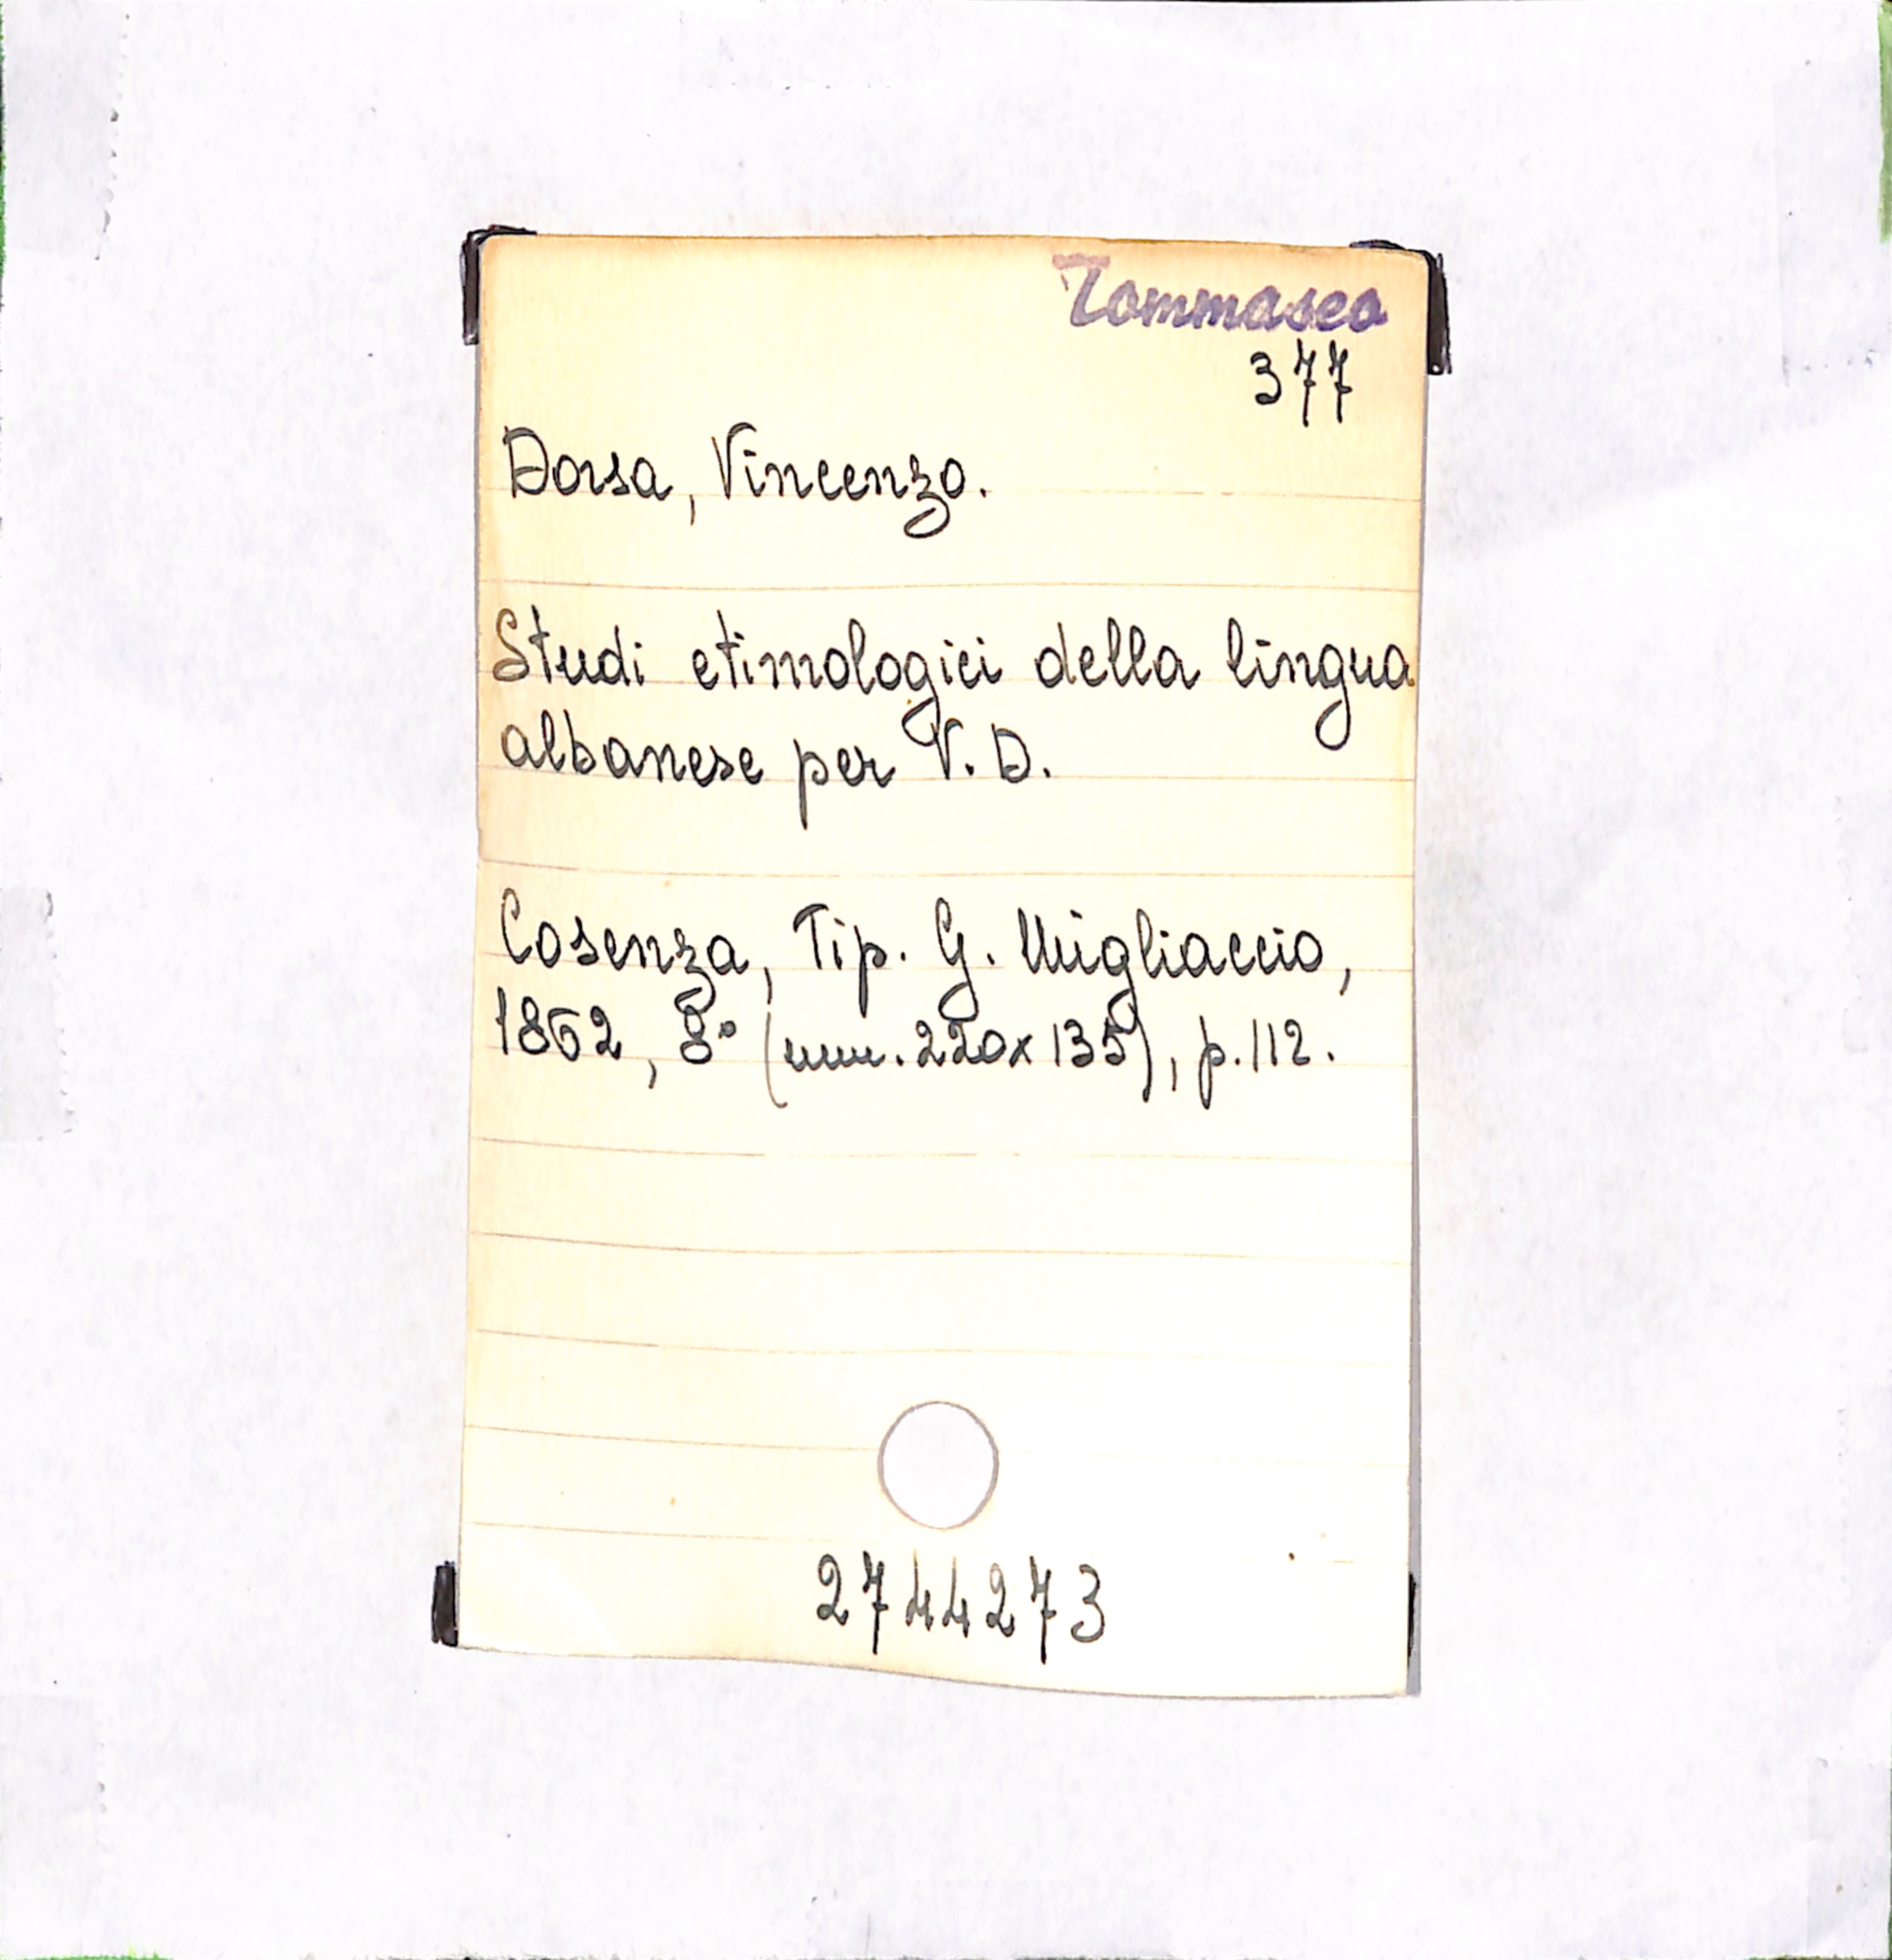 Tommaseo
377
Dorsa, Vincenzo.
Studi etimologici della lingua
albanese per V. D.
Cosenza, Tip. G. Migliaccio,
1862, 8° (mm. 220x135), p. 112.
2744273